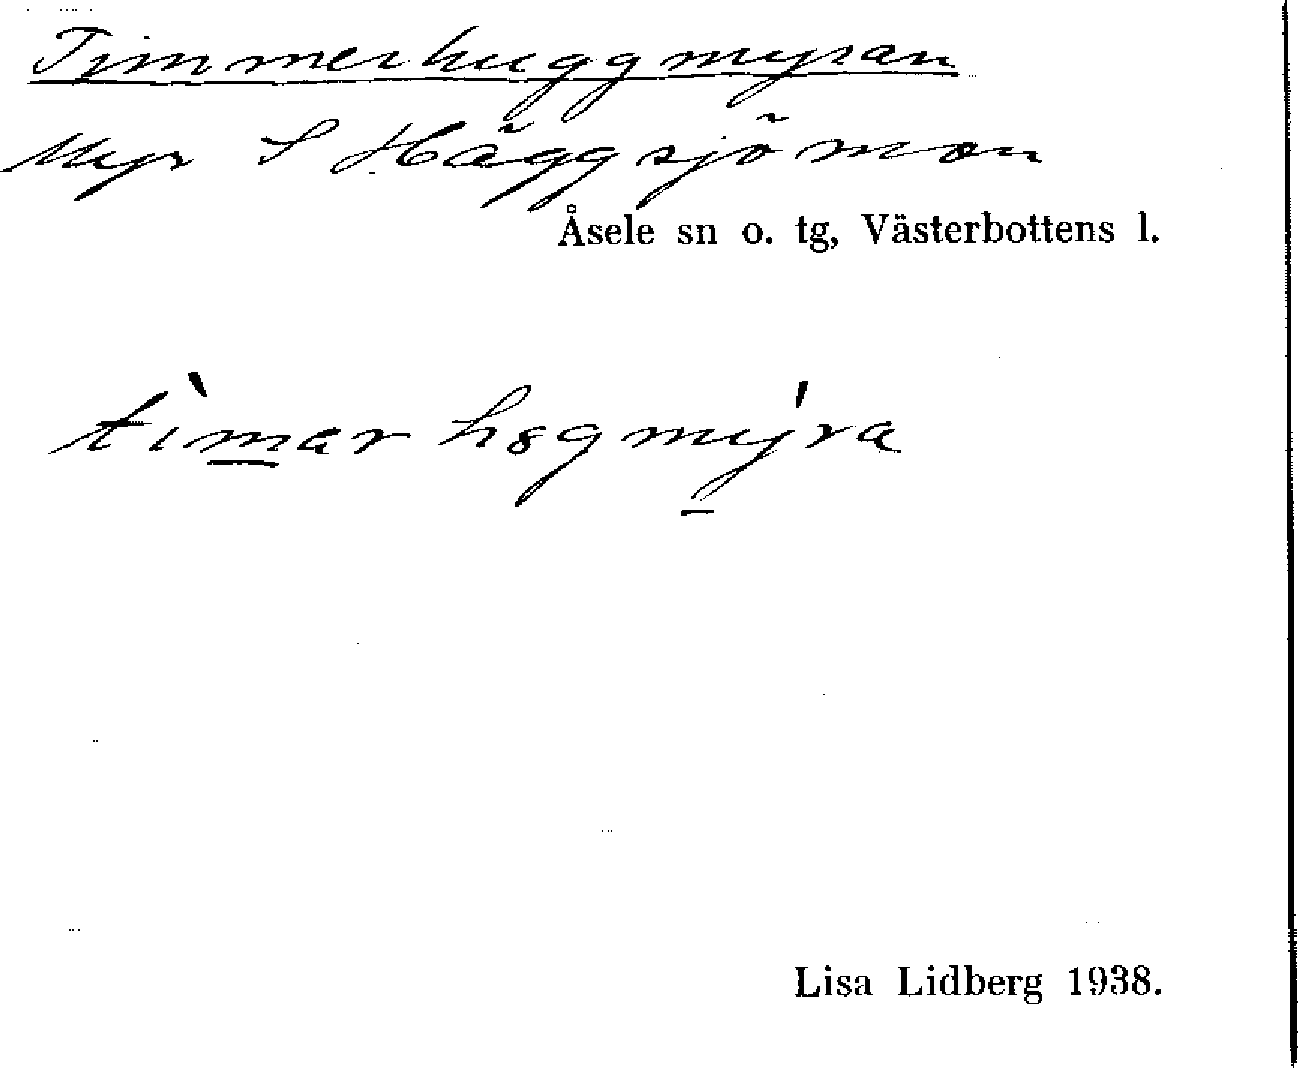 Timmerhuggmyran
Myr S Häggsjömon
Åsele sn o. tg, Västerbottens l.
tìmar hȣgmýra
Lisa Lidberg 1938.